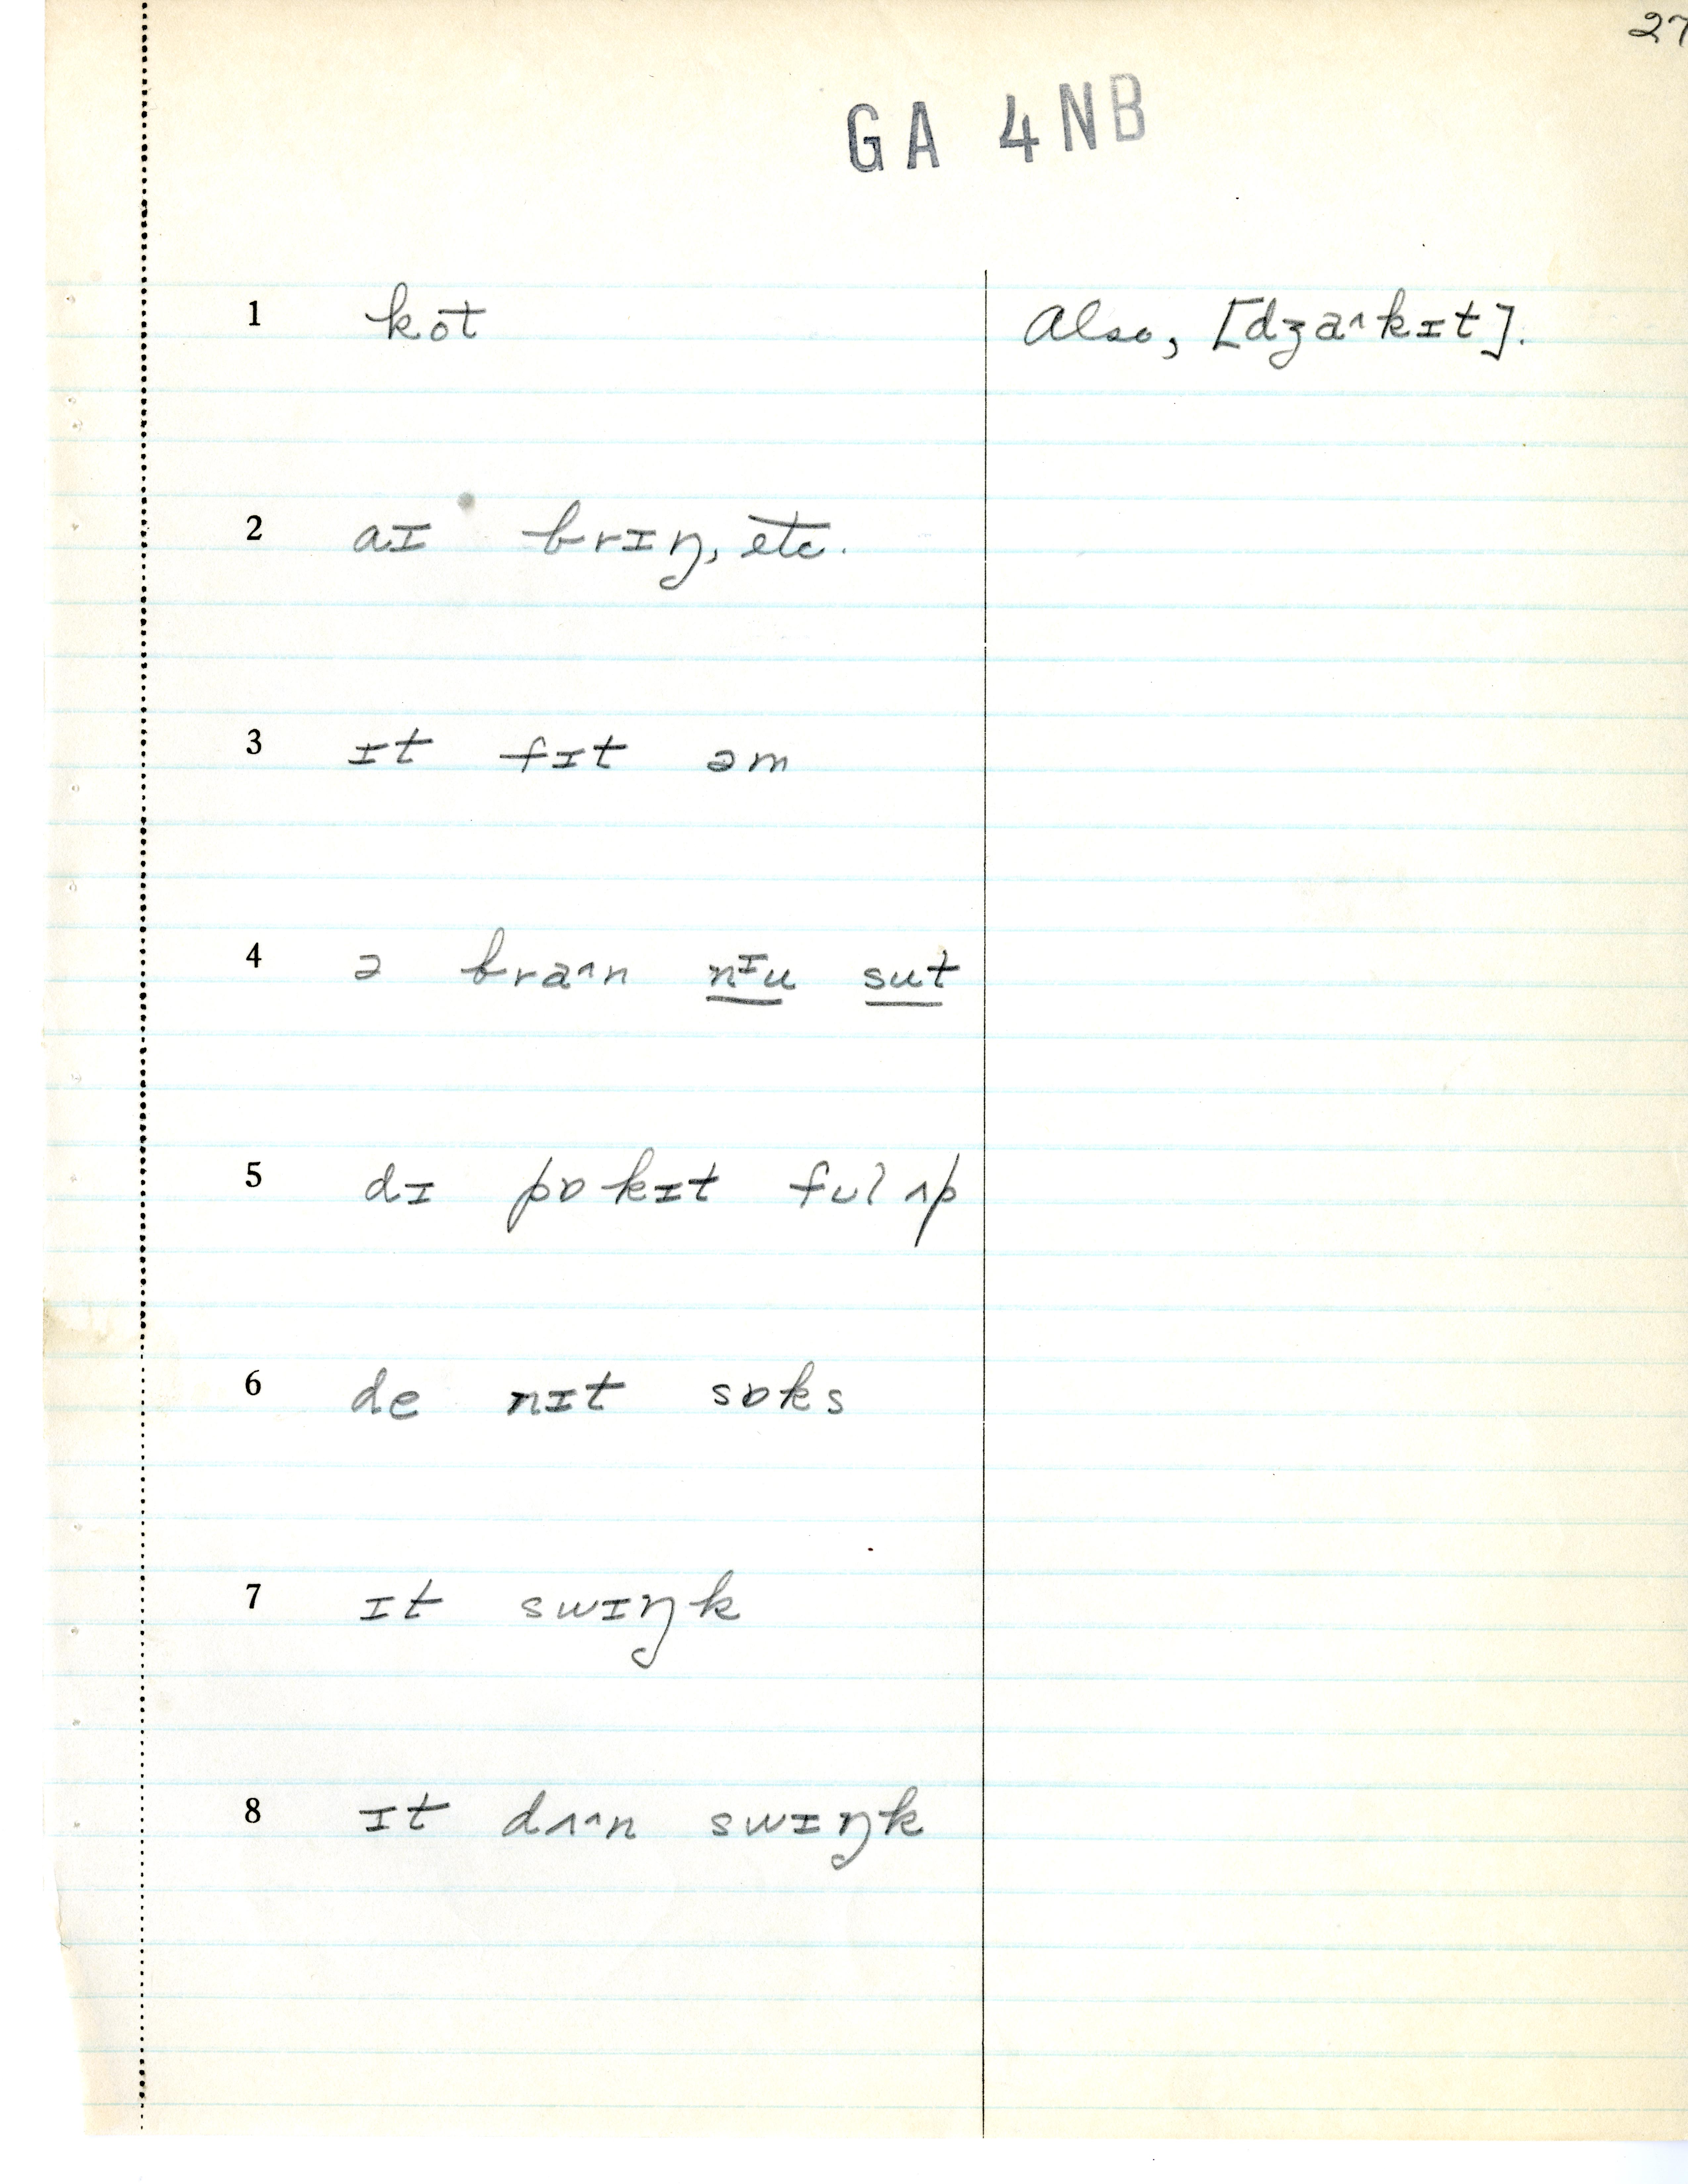 27
GA 4NB
1 kot Also, [dʒa^kɪt].
2 aɪ brɪŋ, etc.
3 ɪt fɪt əm
4 ə bra^n nᶦu sut
5 dɪ pɒkɪt fulʌp
6 de nɪt sɒks
7 ɪt swɪŋk
8 ɪt dʌ^n swɪŋk